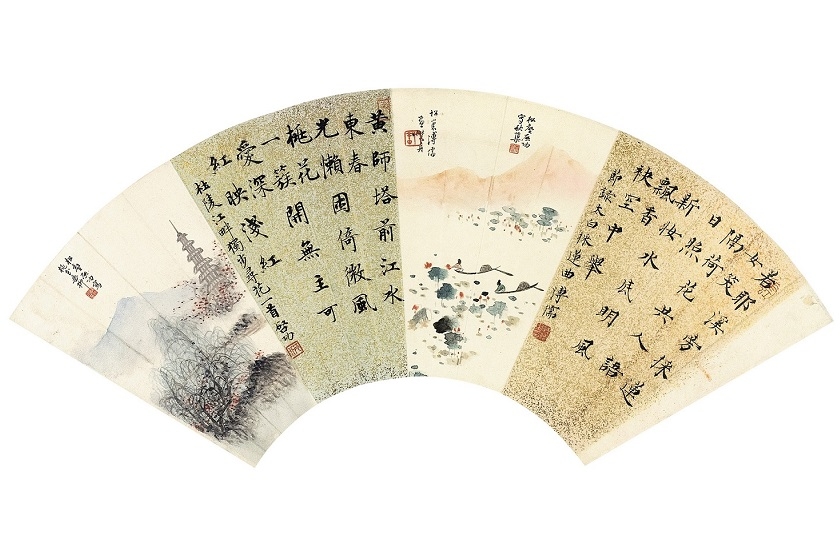 若耶溪旁採蓮
女笑
隔荷花共人語
日照
新妝水底明風
飄香
袂空中舉
節錄太白採蓮曲 溥儒
黃師塔前江水
東春
光懶困倚微風
桃花
一簇開無主可
愛深
紅映淺紅
杜陵江畔獨步尋花一首 啓功